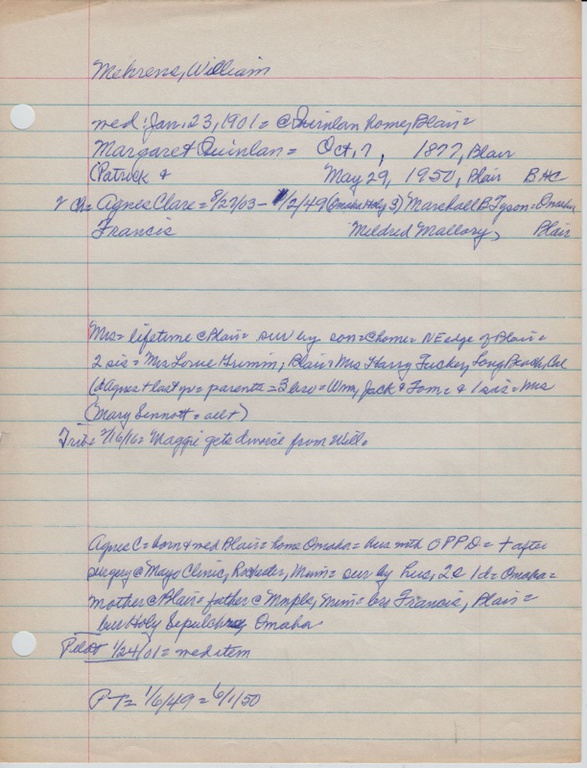 Mehrens, William
med: Jan. 23, 1901 = @ Quinlan home, Blair =
Margaret Quinlan = Oct. 7, 1877, Blair
(Patrick & May 29, 1950, Blair BAC
2 ch = Agnes Clare = 8/27/03 - 1/2/49 (Omaha Holy S) Marshall B. Tyson = Omaha
Francis Mildred Mallory, Blair
Mrs = lifetime @ Blair = sur by son = @ home = NE edge of Blair =
2 sis = Mrs Louie Grimm, Blair = Mrs Harry Tucker, Long Beach, Cal
(Agnes + last yr = parents = 3 bro = Wm, Jack & Tom = & 1 sis = Mrs
(Mary Sennott = all +)
Trib = 2/16/16 = Maggie gets divorce from Will =
Agnes C = born & med Blair = home Omaha = hus with OPPD = + after
surgery @ Mayo Clinic, Rochester, Minn = sur by hus, 2s 1d = Omaha =
mother @ Blair = father @ Mnpls, Minn = bro Francis, Blair =
bur Holy Sepulchre, Omaha
Pilot 1/24/01 = med item
PT = 1/6/49 = 6/1/50